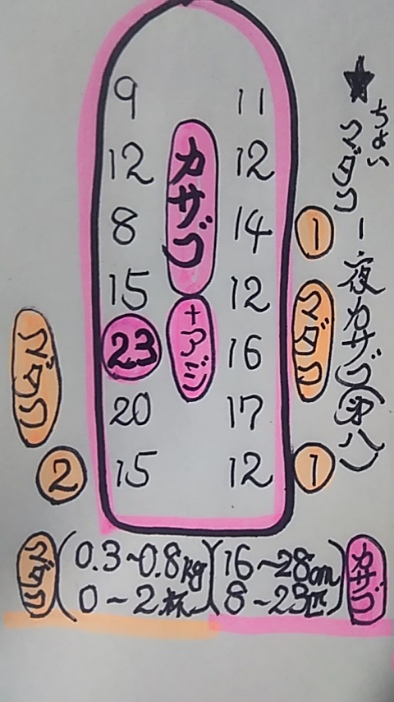 ★ちょいマダコー夜カサゴ(中八)
9 11
12 カサゴ 12
8 14 ①
15 12
マダコ 23 +アジ 16 マダコ
20 17
② 15 12 ①
マダコ (0.3~0.8kg) (16~28cm) カサゴ
0~2杯 8~23匹